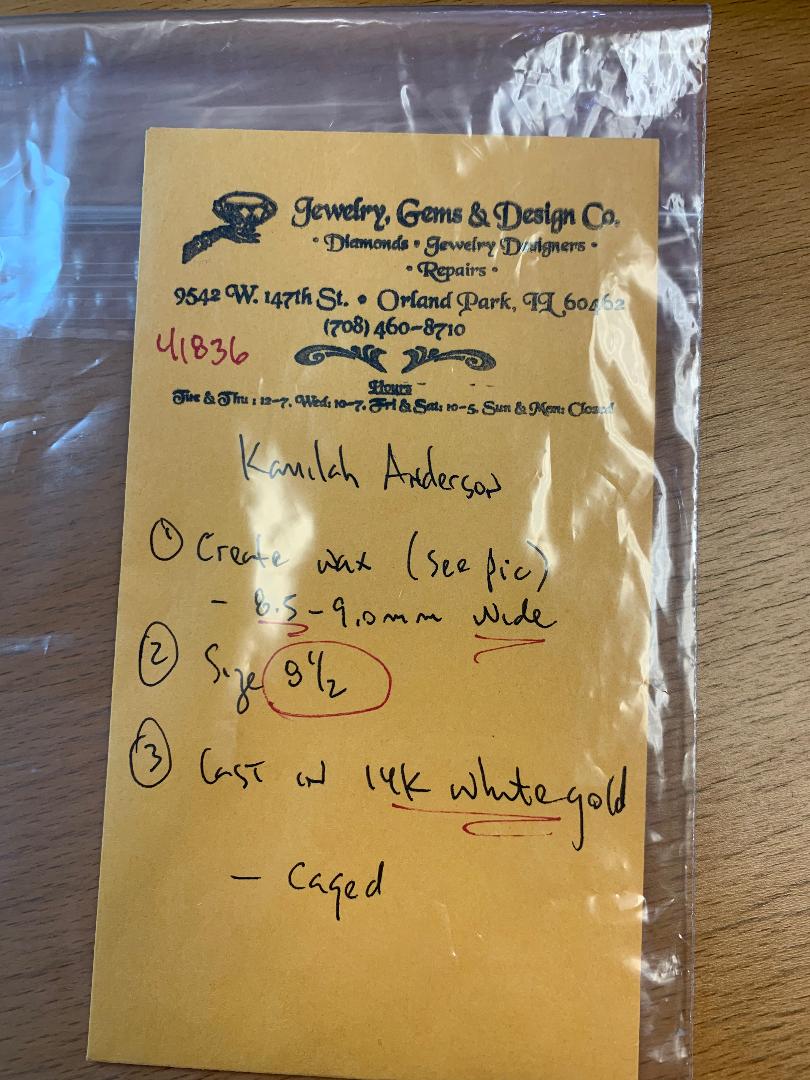 Jewelry, Gems & Design Co.
• Diamonds • Jewelry Designers •
• Repairs •
9542 W. 147th St. • Orland Park, IL 60462
(708) 460-8710
41836
Hours
Tue & Thu : 12-7, Wed: 10-7, Fri & Sat: 10-5, Sun & Mon: Closed
Kamilah Anderson
① Create wax (see pic)
- 8.5 - 9.0 mm Wide
② Size 9 1/2
③ Cast in 14K white gold
- Caged